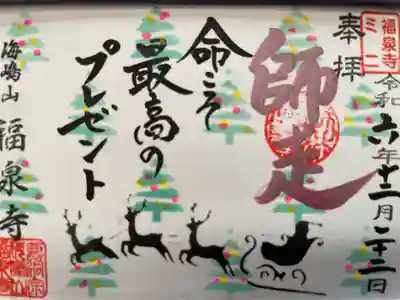 奉拝
福泉寺
令和六年十二月二十二日
師走
命こそ
最高の
プレゼント
海鳴山
福泉寺